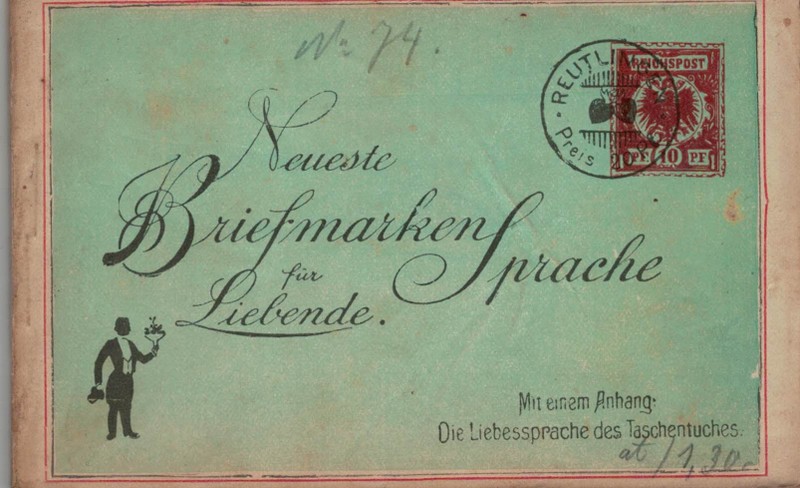 No 74.
REICHSPOST
REUTLINGEN
Preis 20 Pf.
PF 10 PF
Neueste
Briefmarken Sprache
für
Liebende.
Mit einem Anhang:
Die Liebessprache des Taschentuches.
at / 1,30-